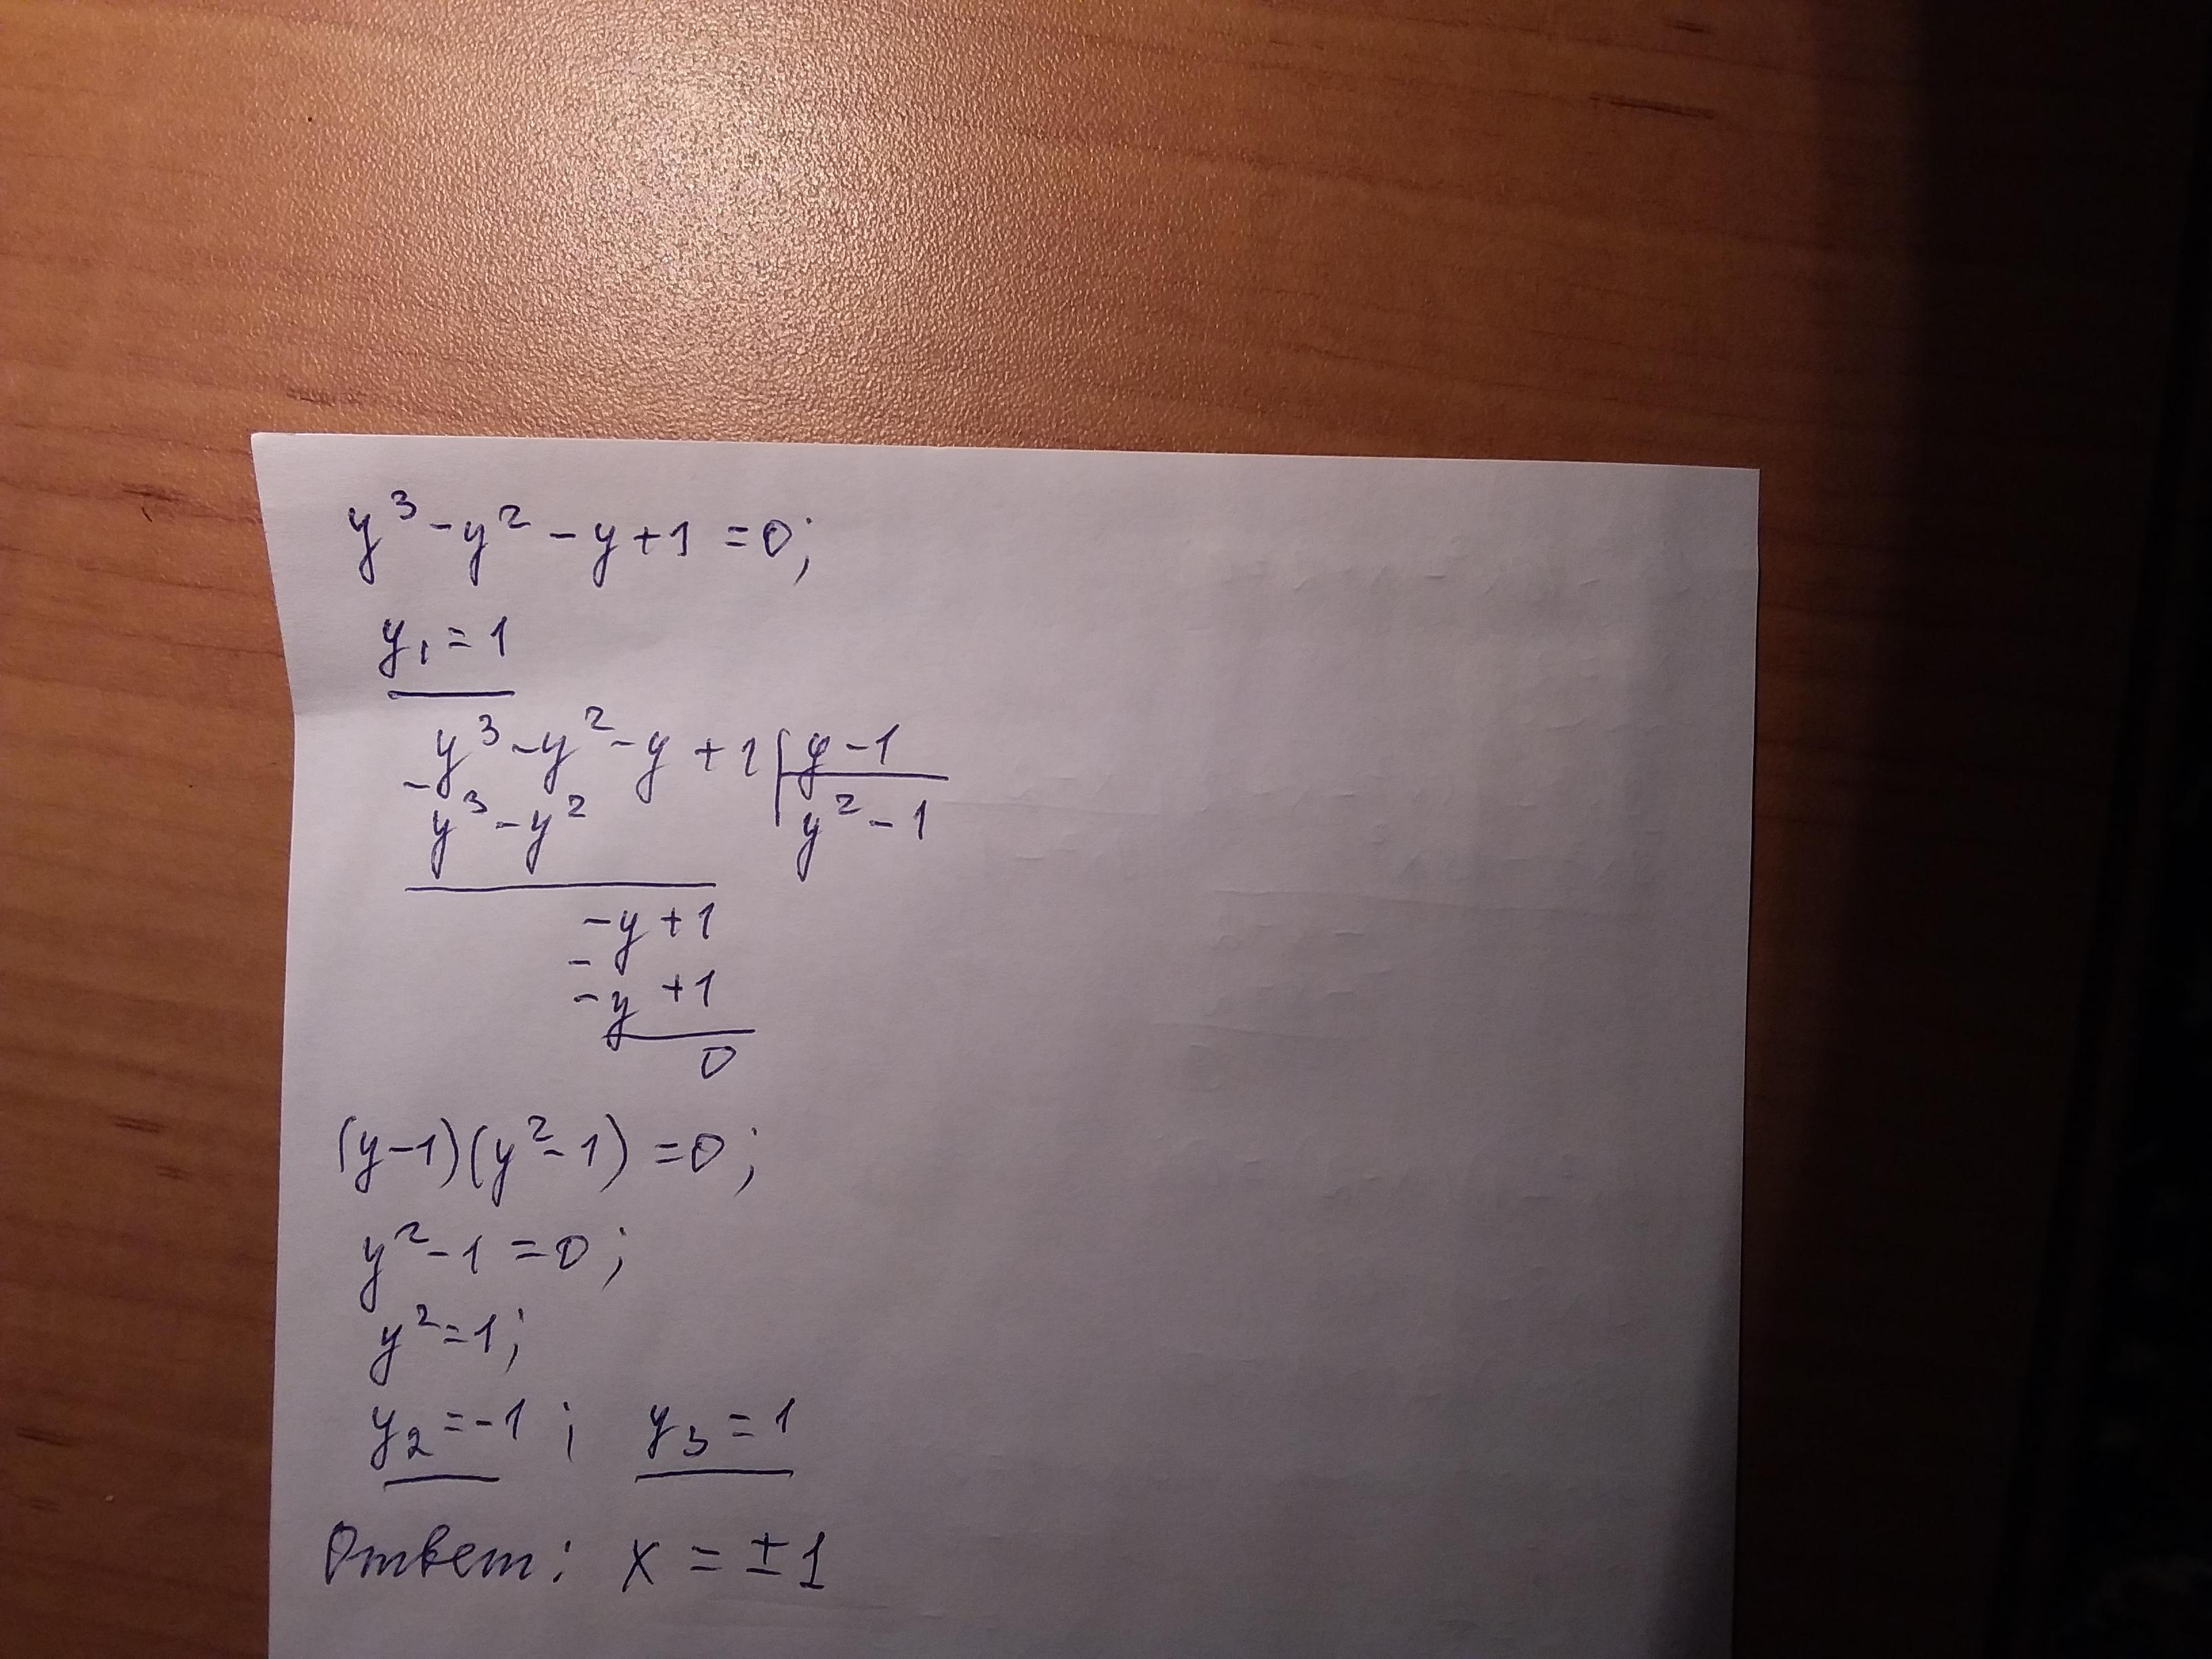 y³ - y² - y + 1 = 0;
y₁ = 1
y³ - y² - y + 1 | y - 1
- y³ - y² | y² - 1
-y + 1
- -y + 1
0
(y-1)(y²-1) = 0;
y² - 1 = 0;
y² = 1;
y₂ = -1 ; y₃ = 1
Ответ: x = ±1